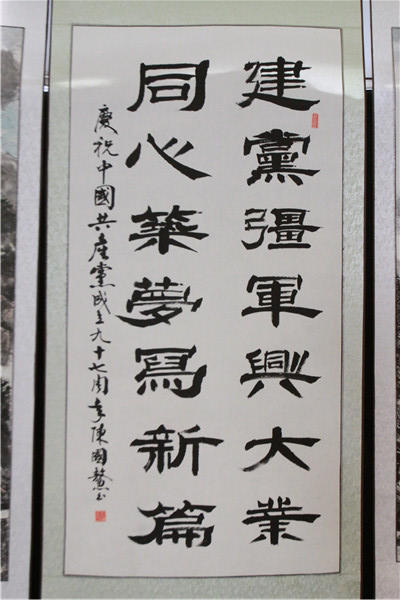 建黨彊軍興大業
同心築夢寫新篇
慶祝中國共產黨成立九十七周年陳國鰲书